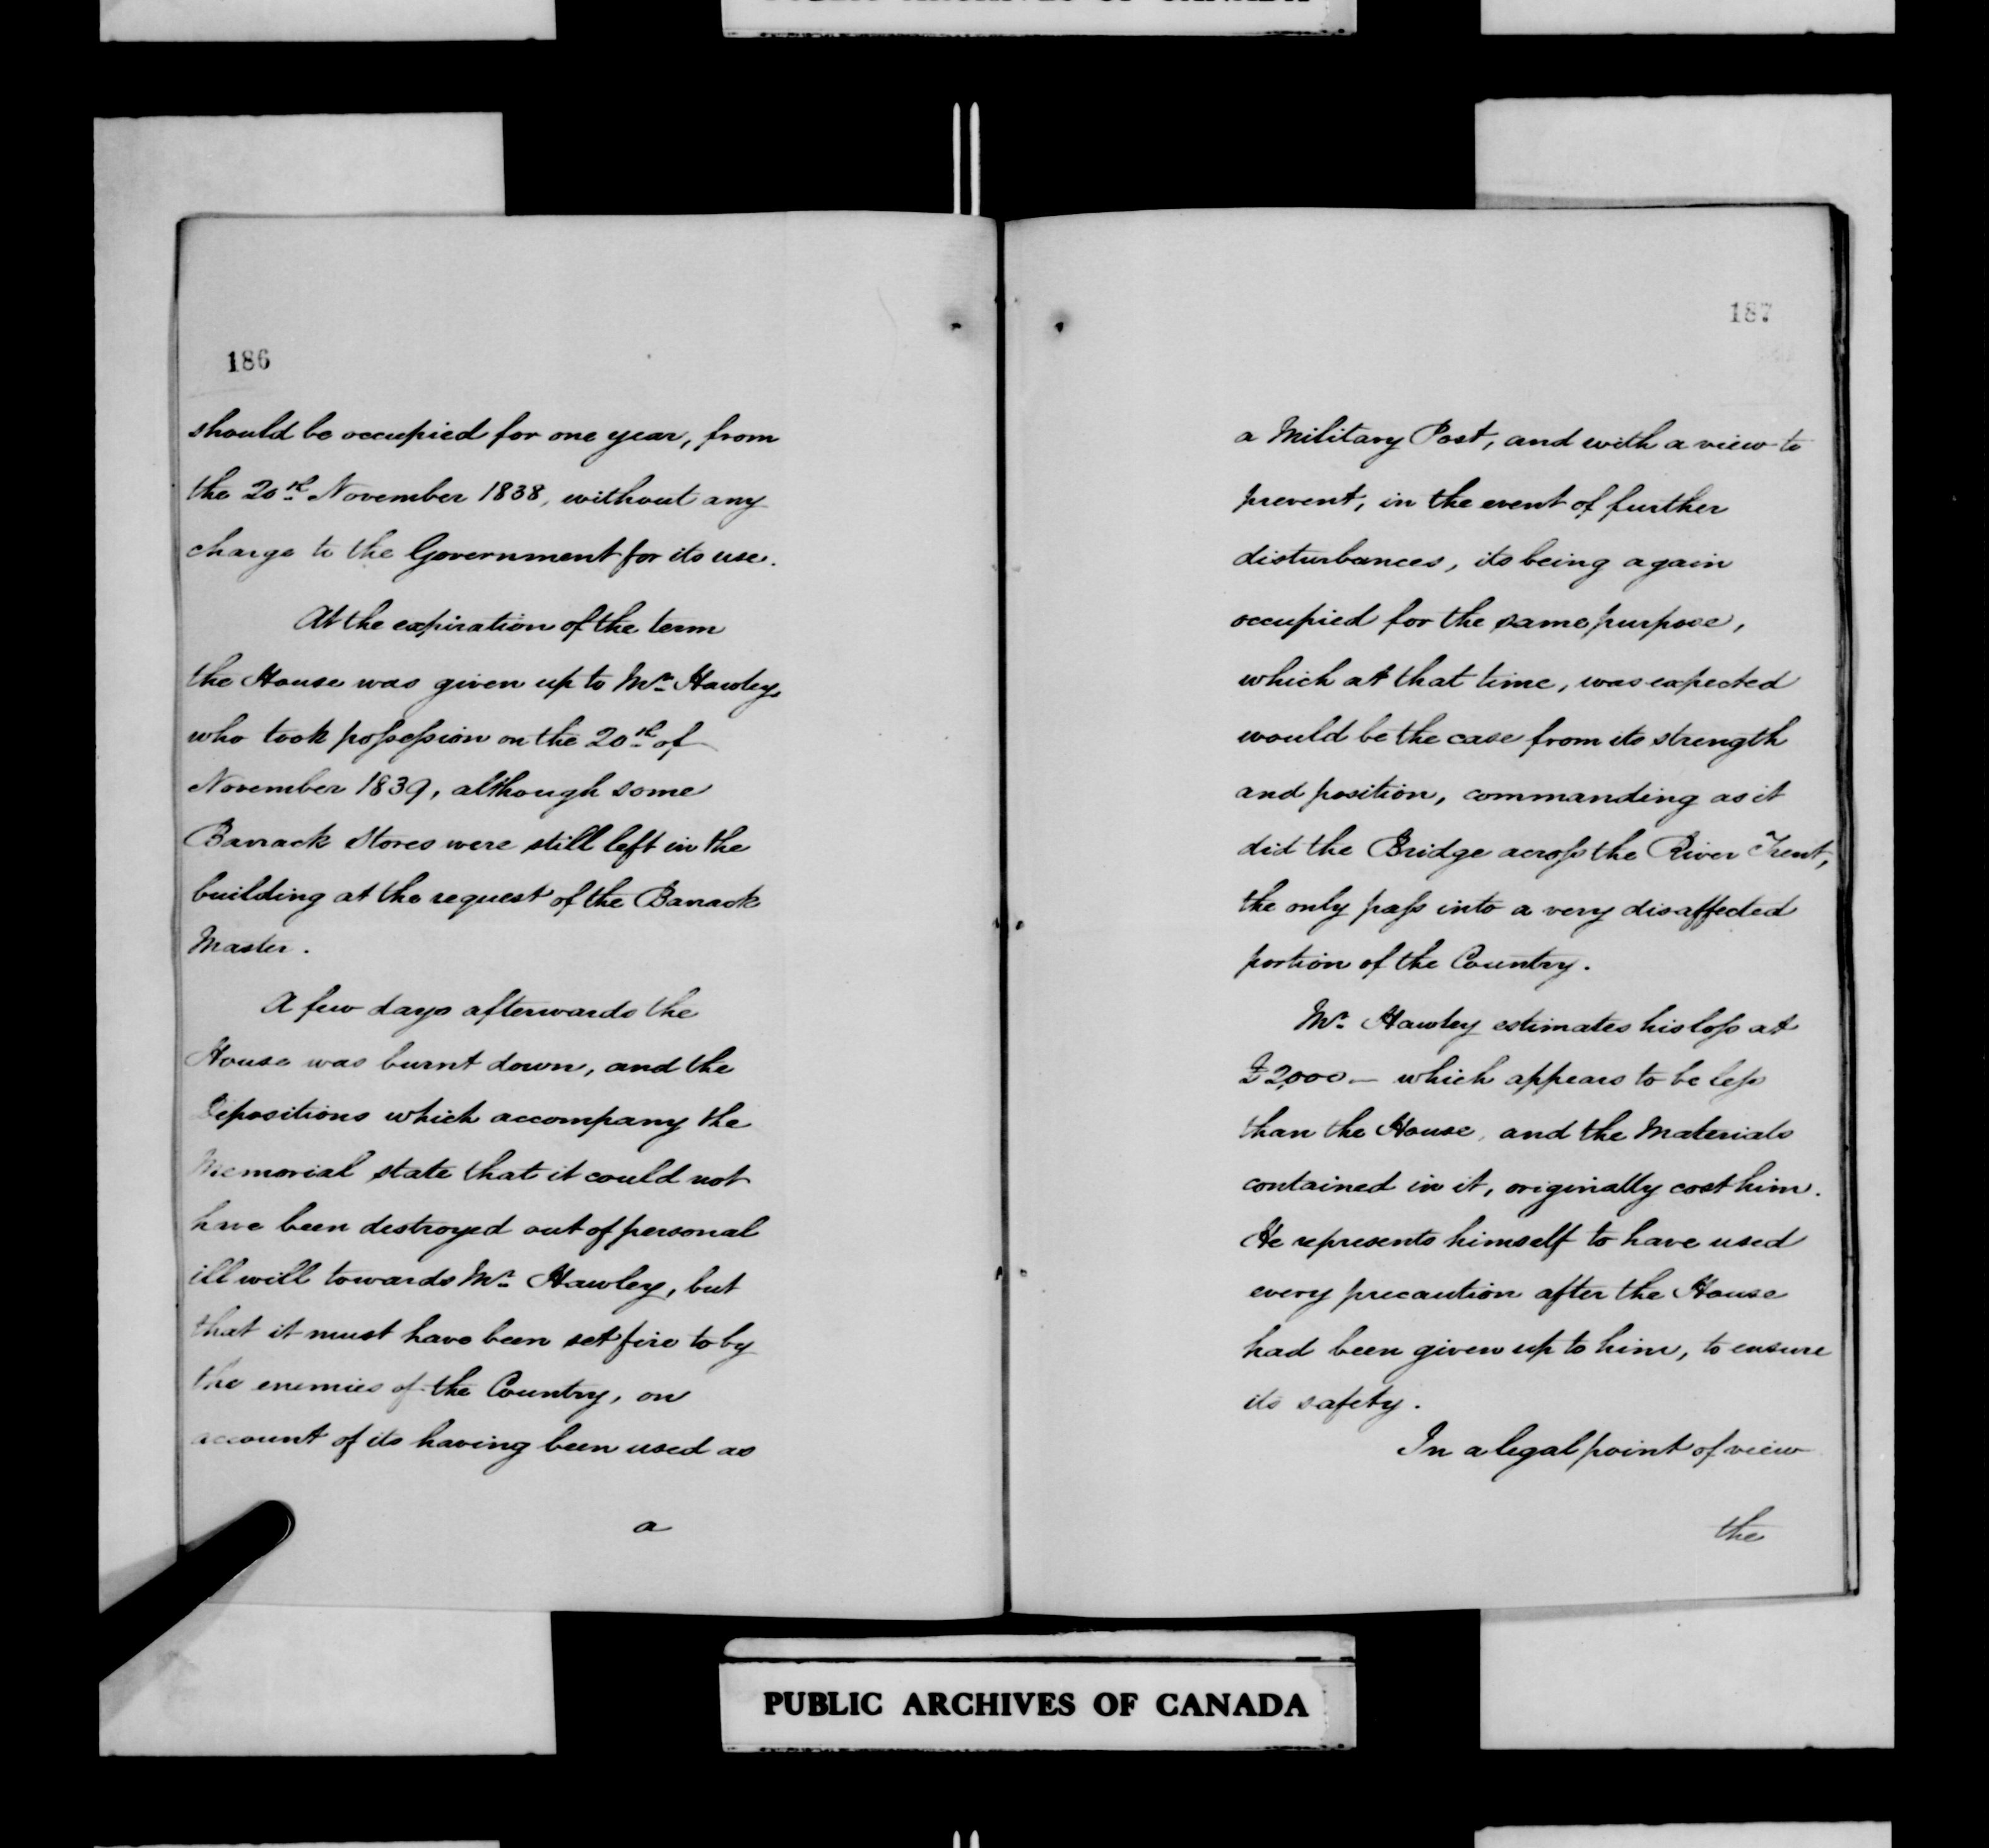 186
should be occupied for one year, from
the 20th November 1838, without any
charge to the Government for its use.
At the expiration of the term
the House was given up to Mr Hawley,
who took possession on the 20th of
November 1839, although some
Barrack Stores were still left in the
building at the request of the Barrack
Master.
A few days afterwards the
House was burnt down, and the
Depositions which accompany the
Memorial state that it could not
have been destroyed out of personal
ill will towards Mr Hawley, but
that it must have been set fire to by
the enemies of the Country, on
account of its having been used as
a
187
a Military Post, and with a view to
prevent, in the event of further
disturbances, its being again
occupied for the same purpose,
which at that time, was expected
would be the case from its strength
and position, commanding as it
did the Bridge across the River Trent,
the only pass into a very disaffected
portion of the Country.
Mr Hawley estimates his loss at
£2,000 — which appears to be less
than the House, and the Materials
contained in it, originally cost him.
He represents himself to have used
every precaution after the House
had been given up to him, to ensure
its safety.
In a legal point of view
the
PUBLIC ARCHIVES OF CANADA